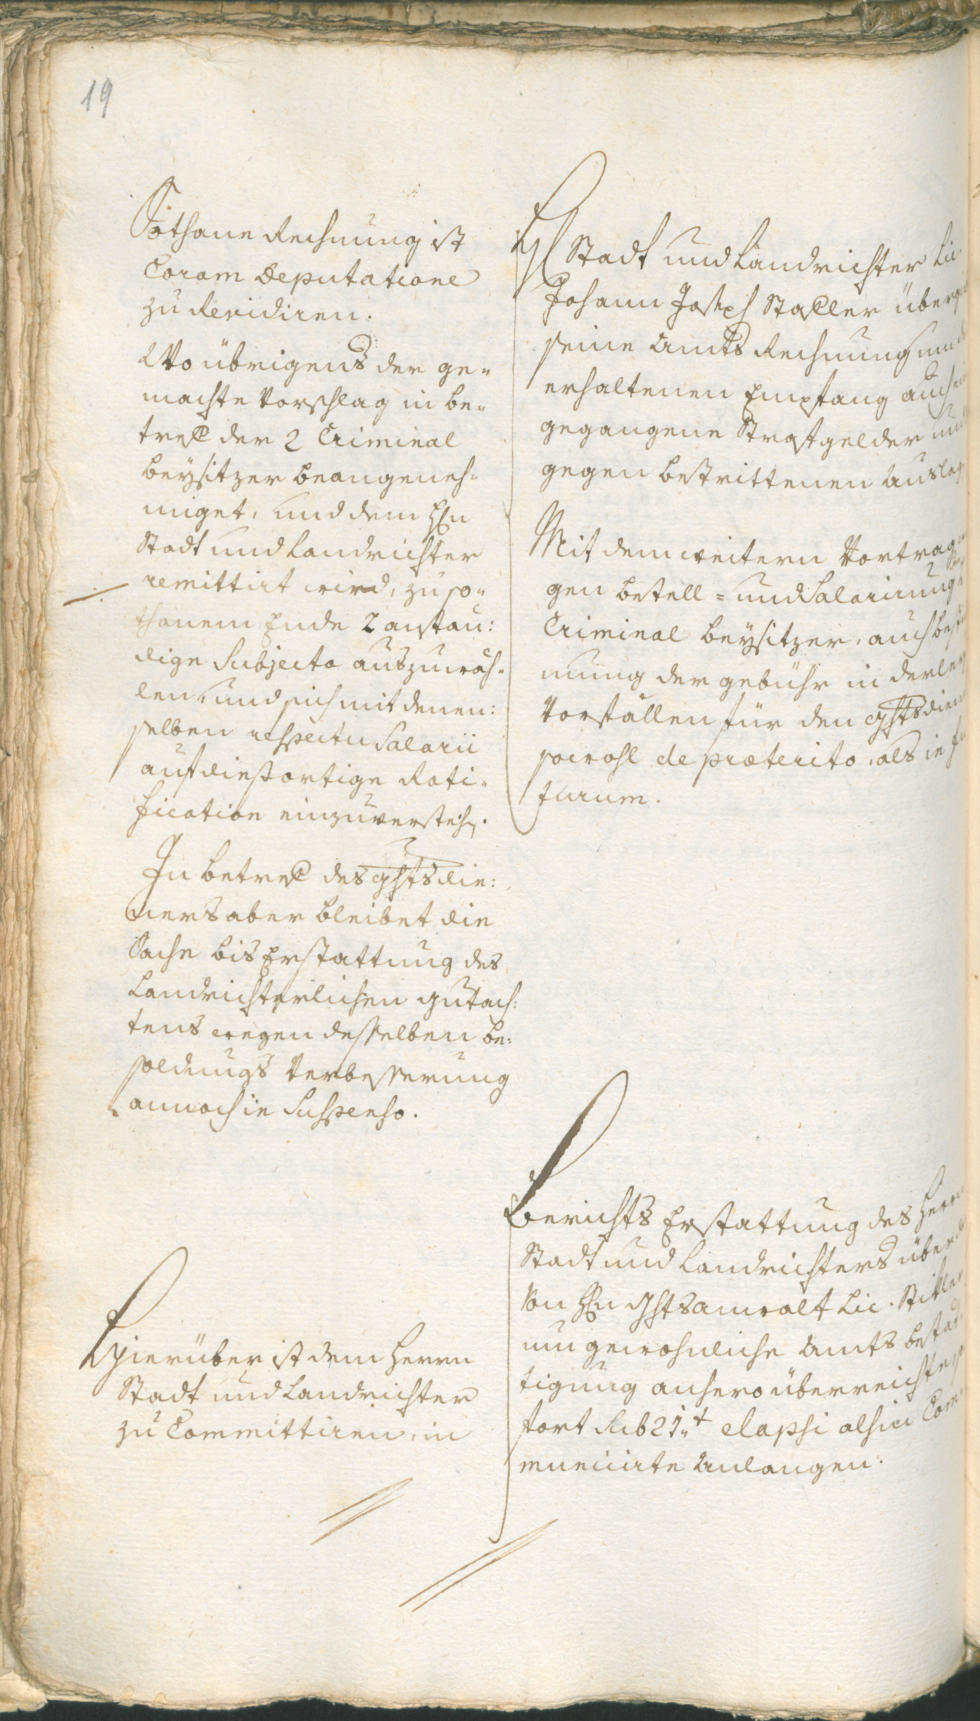 19
Sothane Rechnung ist
Coram Deputatione
zu Revidiren.
Wo übrigens der ge-
machte Vorschlag in be-
tref der 2 Criminal
beysitzer beangeneh-
miget, und dem Hn
Stadt und Landrichter
remittirt wird, zu so-
thanem Ende 2 anstän:
dige Subjecta auszuwäh-
len, und sich mit denen:
selben respectu Salarii
auf diesortige Rati-
fication einzuverstehen.
In betref des Ghtsdie:
ners aber bleibet die
Sache bis Erstattung des
Landrichterlichen Gutach:
tens wegen desselben be-
soldungs Verbesserung
annoch in Suspenso.
Hierüber ist dem Herrn
Stadt und Landrichter
zu Committiren, in
H Stadt und Landrichter Lic
Johann Joseph Stapler
seine Amts Rechnung um
erhaltenen Empfang auch
gegangene Strafgelder
gegen bestrittenen
Mit dem weitern Vortrag
gen bestell- und Salarirung
Criminal beysitzer, auch
mung der gebühr in
Vorfällen für den
sowohl de præterito, als in
turum.
Berichts Erstattung des Herrn
Stadt und Landrichters über
von Hn Ghtsanwalt Lic.
um gewohnliche Amts bestät
tigung anhero überreicht
fort sub 21.t elapsi alhier Com
municirte Anlangen.